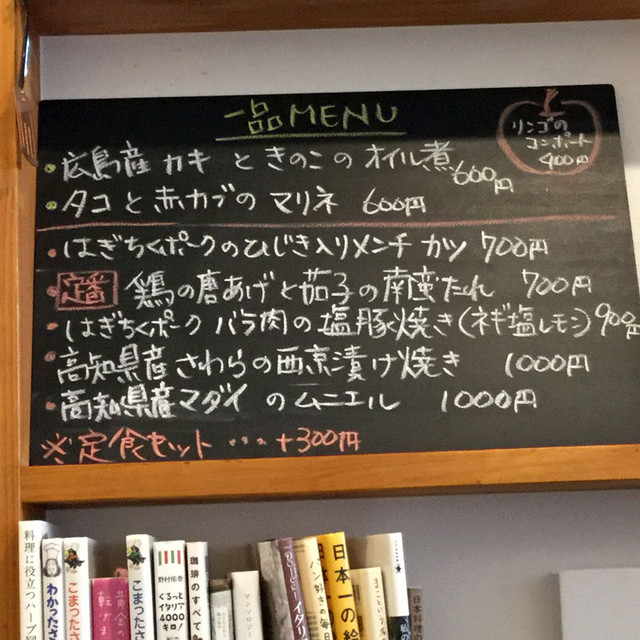 一品MENU
リンゴの
コンポート
400円
・広島産 カキ と きのこの オイル煮 600円
・タコと赤カブの マリネ 600円
・はぎちくポークのひじき入りメンチ カツ 700円
定番 鶏の唐あげと茄子の南蛮たれ 700円
・はぎちくポーク バラ肉の塩豚焼き(ネギ塩レモン)900円
・高知県産さわらの西京漬け焼き 1000円
・高知県産マダイ のムニエル 1000円
※定食セット・・・+300円
料理に役立つハーブ図
わかったさ
こまったさ
こまったさ
野村佑香
ぐるっと
イタリア
4000
キロ!
珈琲のすべて
アンソロジー
イタリ
パン好きの毎日
日本一の絵
日本料理